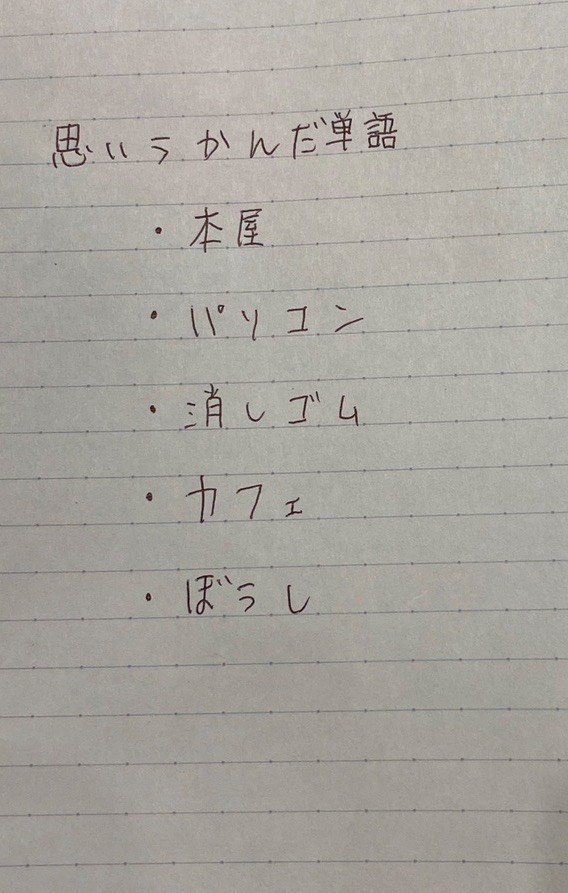 思いうかんだ単語
・本屋
・パソコン
・消しゴム
・カフェ
・ぼうし